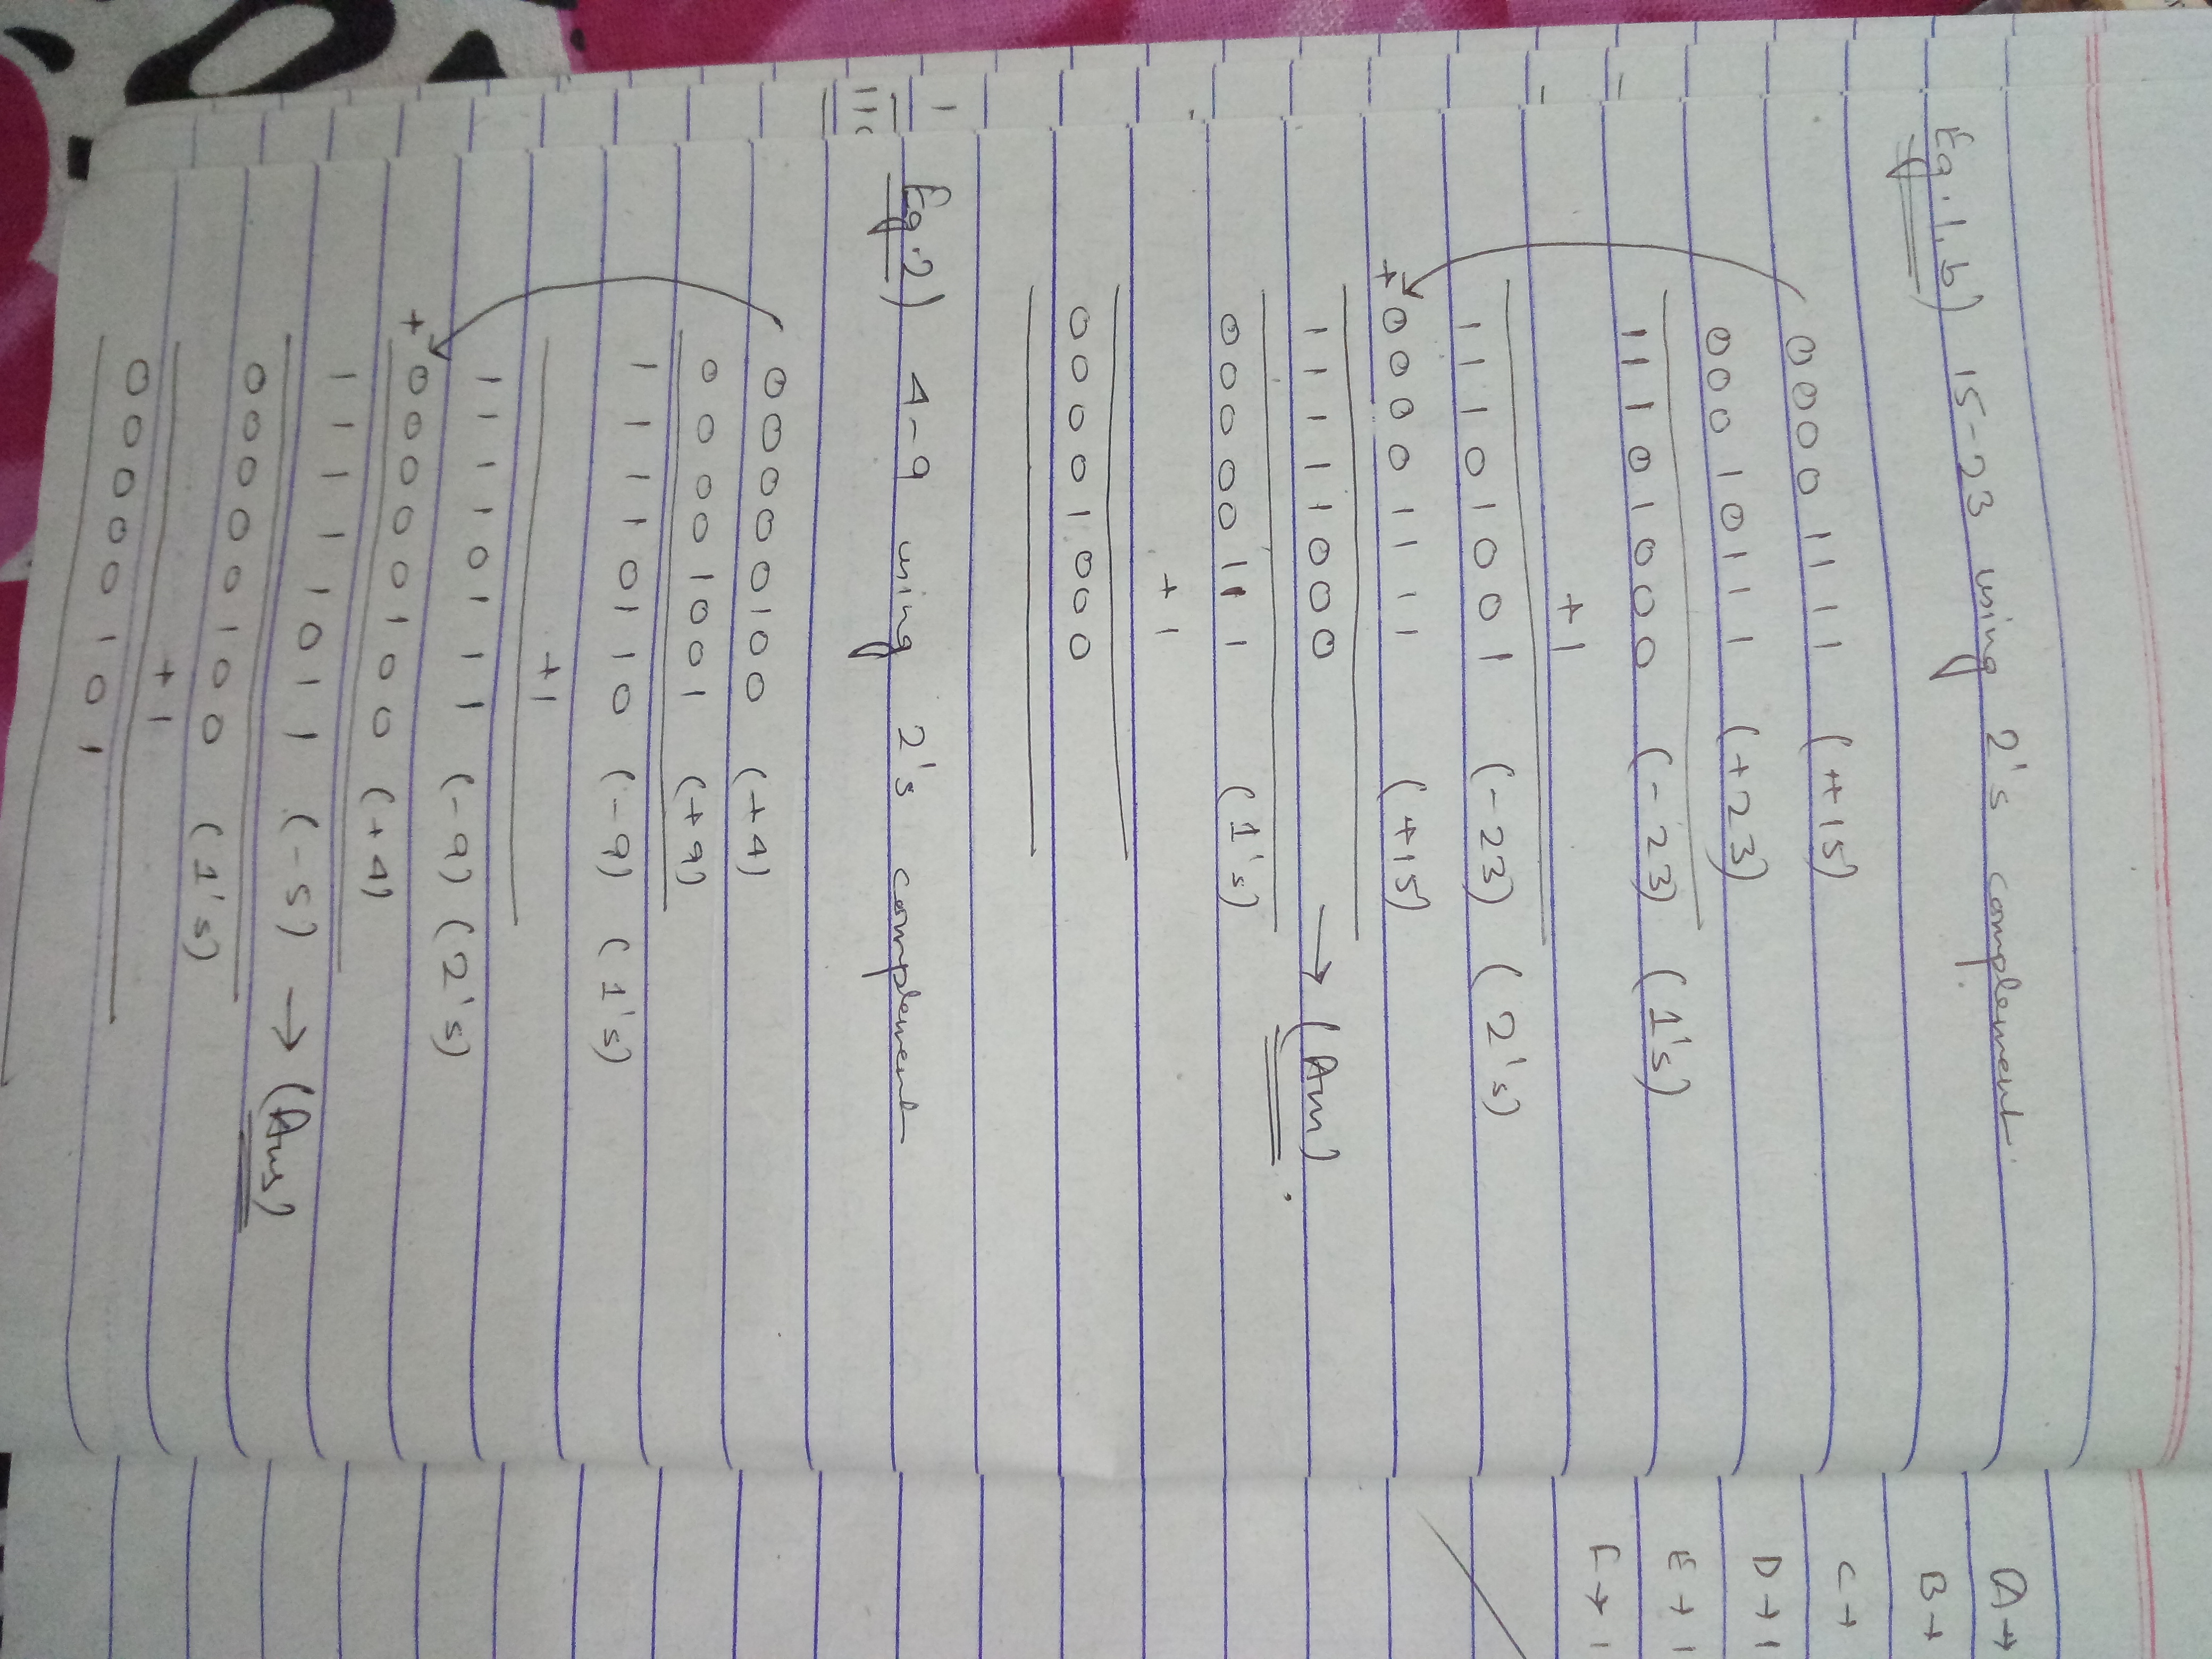 Eg.1.b) 15-23 using 2's complement.
00001111 (+15)
00010111 (+23)
11101000 (-23) (1's)
+1
11101001 (-23) (2's)
+00001111 (+15)
11111000 → (Ans).
00000111 (1's)
+1
00001000
Eg.2) 4-9 using 2's complement
00000100 (+4)
00001001 (+9)
11110110 (-9) (1's)
+1
11110111 (-9) (2's)
+00000100 (+4)
11111011 (-5) → (Ans)
00000100 (1's)
+1
00000101
A →
B →
C →
D → 1
E → 1
F → 1
1